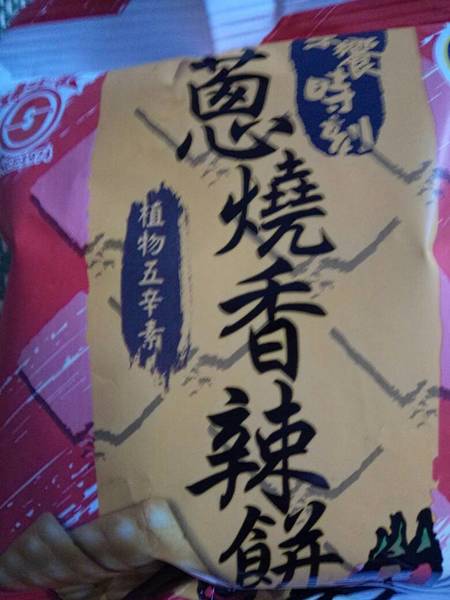 饗時刻
蔥燒香辣餅
植物五辛素